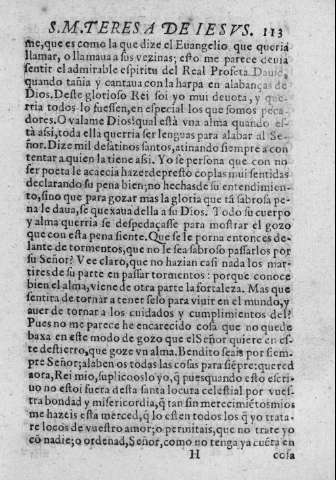 S. M. TERESA DE IESVS. 113
me, que es como la que dize el Euangelio que queria
llamar, o llamaua a sus vezinas; esto me parece deuia
sentir el admirable espiritu del Real Profeta Dauid,
quando tañia y cantaua con la harpa en alabanças de
Dios. Deste glorioso Rei soi yo mui deuota, y que-
rria todos lo fuessen, en especial los que somos peca-
dores. O valame Dios! qual està vna alma quando es-
tà assi, toda ella querria ser lenguas para alabar al Se-
ñor. Dize mil desatinos santos, atinando siempre a con
tentar a quien la tiene assi. Yo se persona que con no
ser poeta le acaecia hazer de presto coplas mui sentidas
declarando su pena bien; no hechas de su entendimien-
to, sino que para gozar mas la gloria que tã sabrosa pe-
na le daua, se quexaua della a su Dios. Todo su cuerpo
y alma querria se despedaçasse para mostrar el gozo
que con esta pena siente. Que se le porna entonces de-
lante de tormentos, que no le sea sabroso passarlos por
su Señor? Vee claro, que no hazian casi nada los mar-
tires de su parte en passar tormentos: porque conoce
bien el alma, viene de otra parte la fortaleza. Mas que
sentira de tornar a tener seso para viuir en el mundo, y
auer de tornar a los cuidados y cumplimientos del?
Pues no me parece he encarecido cosa que no quede
baxa en este modo de gozo que el Señor quiere en es-
te destierro, que goze vn alma. Bendito seais por siem-
pre Señor; alaben os todas las cosas para siẽpre: quered
aora, Rei mio, suplicoos lo yo, q̃ pues quando esto escri-
uo no estoi fuera desta santa locura celestial por vues-
tra bondad y misericordia, q̃ tan sin merecimiẽtos mios
me hazeis esta merced, q̃ lo estẽn todos los q̃ yo trata-
re locos de vuestro amor; o permitais, que no trate yo
cõ nadie; o ordenad, Señor, como no tenga ya cuẽta en
H cosa